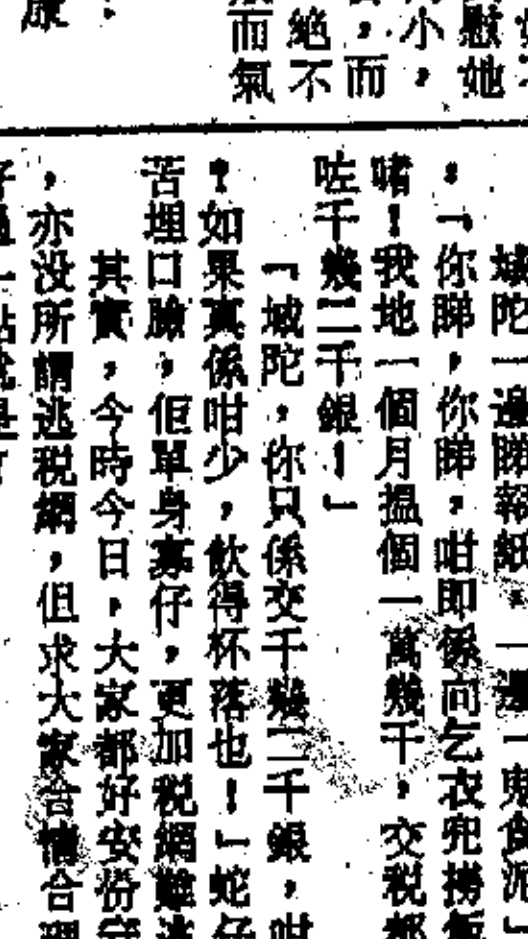 慰她
小，
，而
絕不
而氣
：
康
陀一邊睇報紙，一邊一
：「你睇，你睇，咁即係向乞衣兜撈飯
啫！我地一個月搵個一萬幾千，交稅都
咗千幾二千銀！」
「城陀，你只係交千幾二千銀，咁
？如果真係咁少，飲得杯落也！」蛇仔
苦埋口臉，佢單身寡仔，更加稅網難逃
其實，今時今日，大家都好安份守
，亦没所謂逃税網，但求大家合情合理